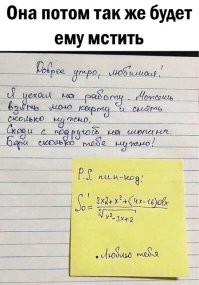 Она потом так же будет
ему мстить
Доброе утро, любимая!
Я уехал на работу. Можешь
взять мою карту и снять
сколько нужно.
Сходи с подругой на шопинг.
Бери сколько тебе нужно!
P.S. пин-код:
Люблю тебя